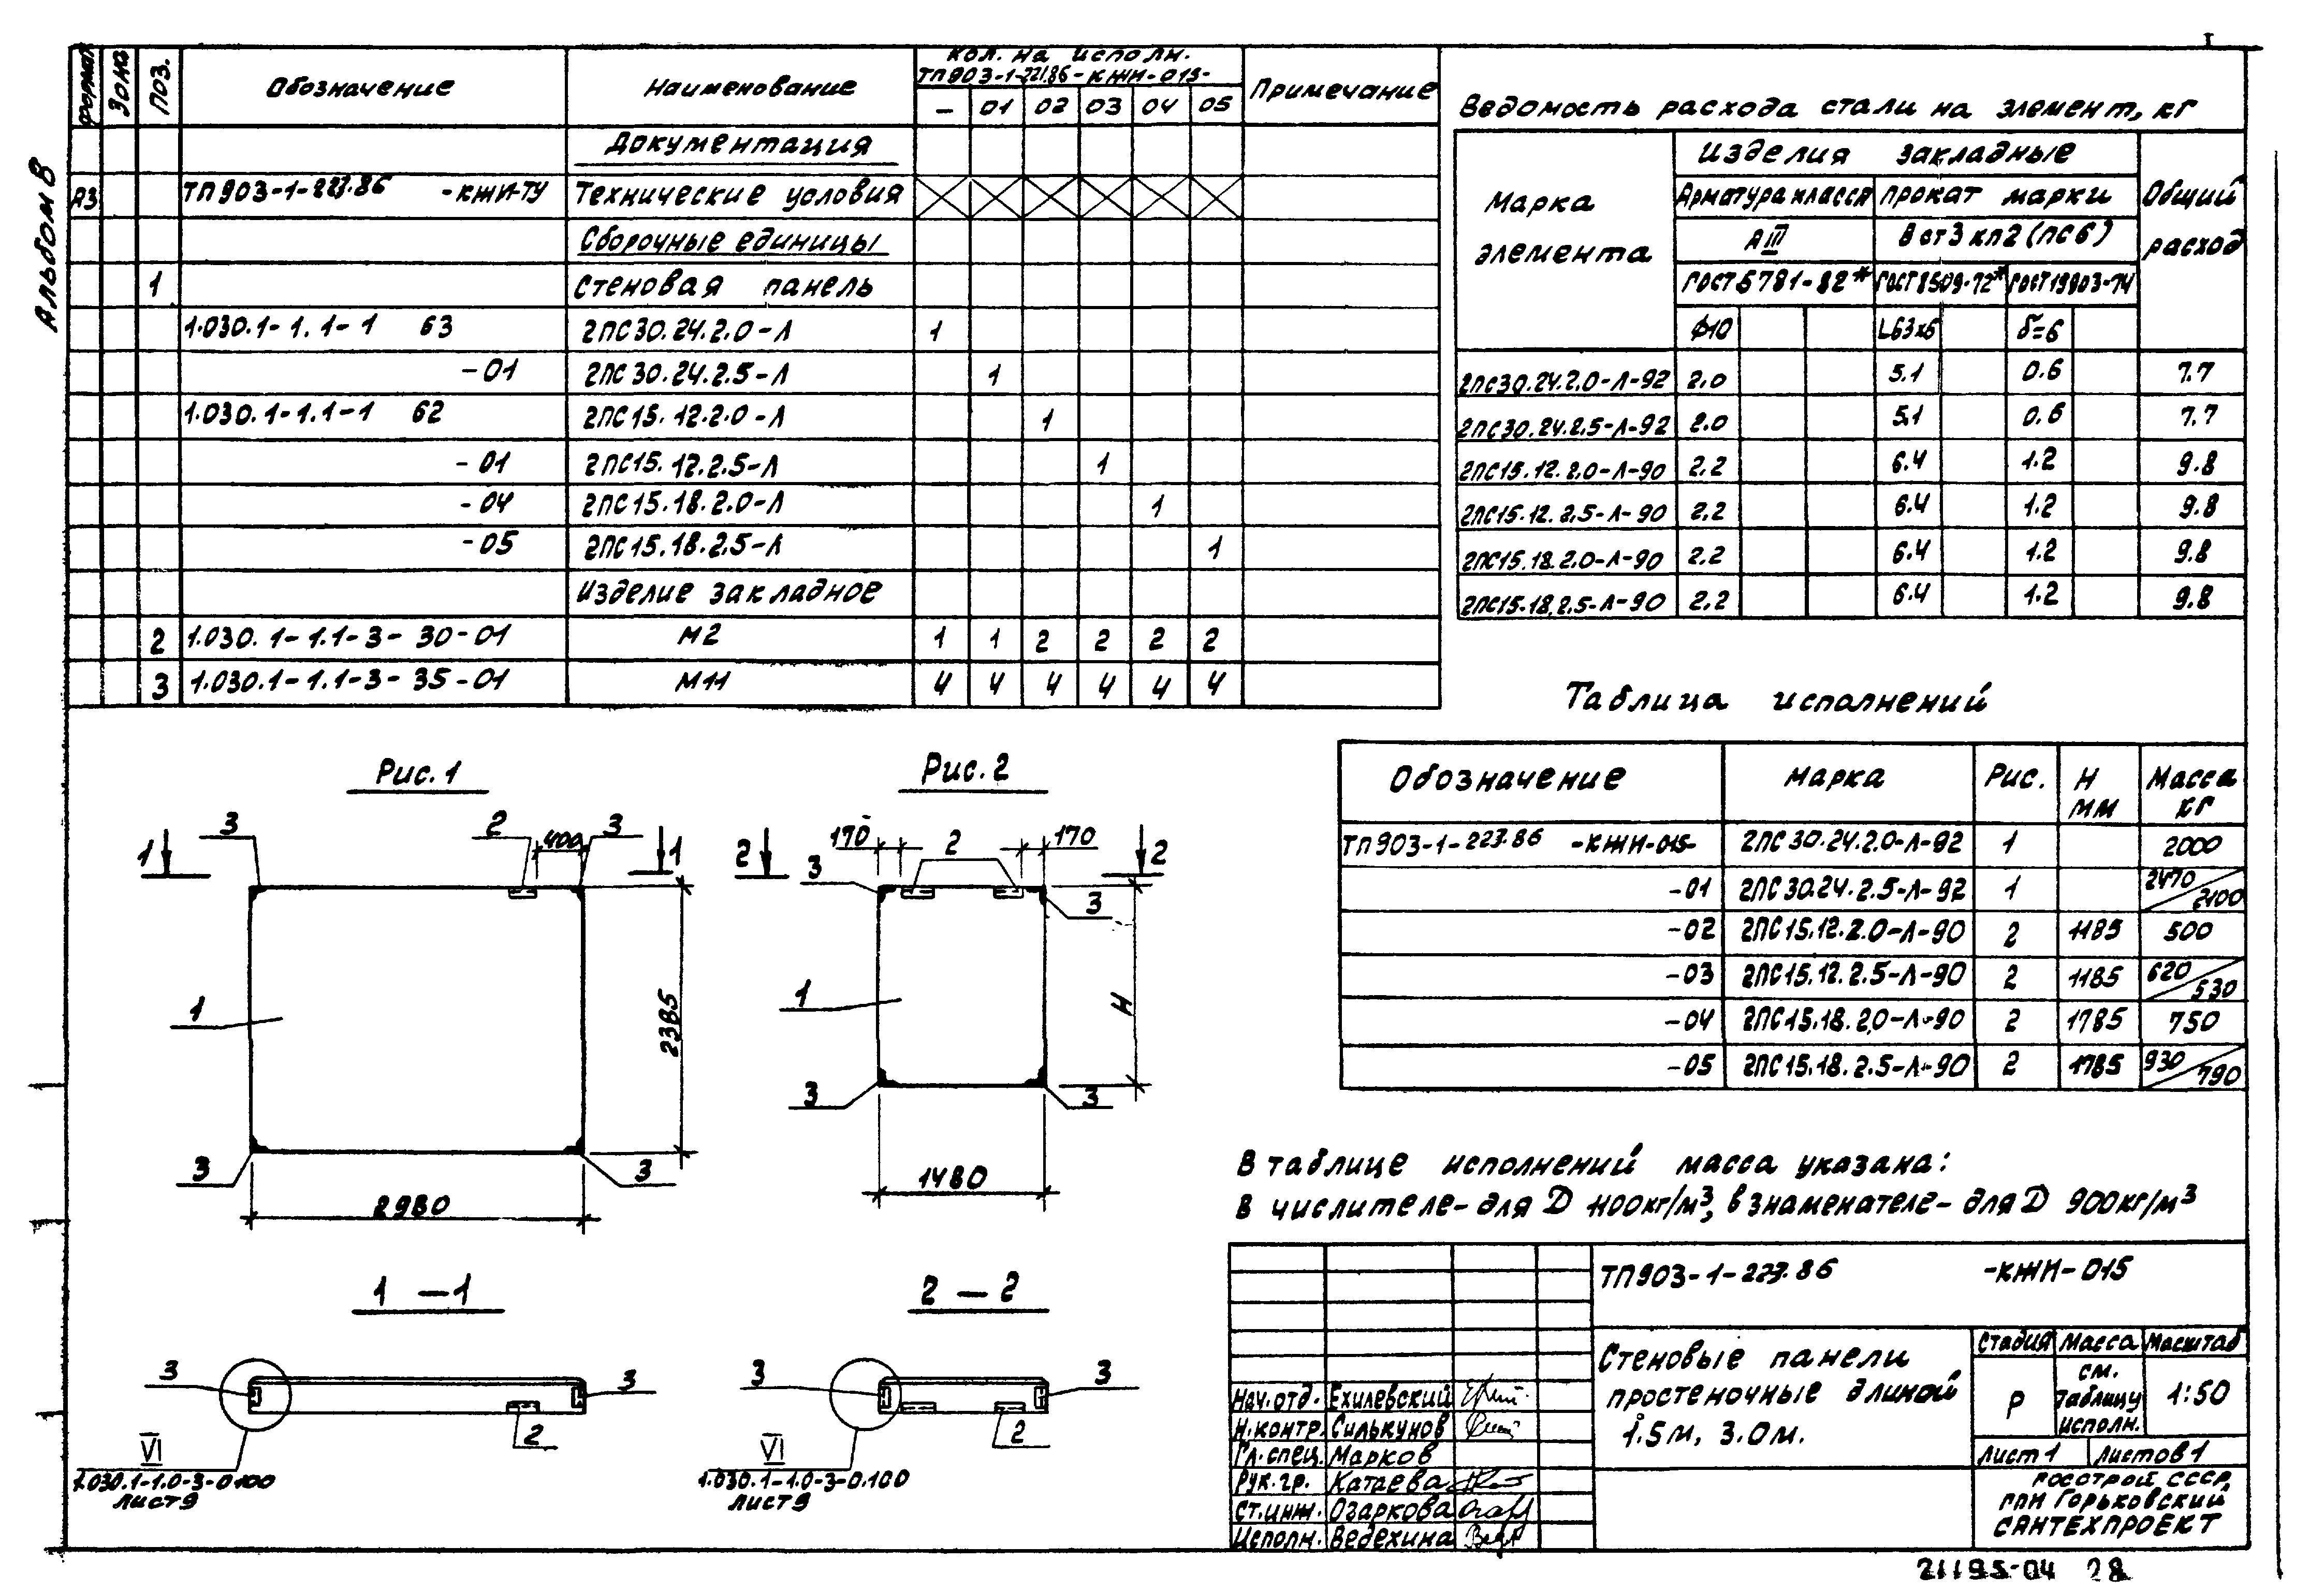 Альбом 8
Формат Зона Поз. Обозначение Наименование Кол. на исполн. Примечание
ТП903-1-221.86-КЖИ-015-
- 01 02 03 04 05
Документация
А3 ТП903-1-227.86 -КЖИ-ТУ Технические условия
Сборочные единицы
1 Стеновая панель
1.030.1-1.1-1 63 2ПС30.24.2.0-Л 1
-01 2ПС30.24.2.5-Л 1
1.030.1-1.1-1 62 2ПС15.12.2.0-Л 1
-01 2ПС15.12.2.5-Л 1
-04 2ПС15.18.2.0-Л 1
-05 2ПС15.18.2.5-Л 1
Изделие закладное
2 1.030.1-1.1-3-30-01 М2 1 1 2 2 2 2
3 1.030.1-1.1-3-35-01 М11 4 4 4 4 4 4
Ведомость расхода стали на элемент, кг
Марка элемента Изделия закладные Общий расход
Арматура класса Прокат марки
АIII Вст3кп2(пс6)
ГОСТ5781-82* ГОСТ8509-72* ГОСТ19903-74
ф10 L63х6 δ=6
2ПС30.24.2.0-Л-92 2.0 5.1 0.6 7.7
2ПС30.24.2.5-Л-92 2.0 5.1 0.6 7.7
2ПС15.12.2.0-Л-90 2.2 6.4 1.2 9.8
2ПС15.12.2.5-Л-90 2.2 6.4 1.2 9.8
2ПС15.18.2.0-Л-90 2.2 6.4 1.2 9.8
2ПС15.18.2.5-Л-90 2.2 6.4 1.2 9.8
Таблица исполнений
Обозначение Марка Рис. Н мм Масса кг
ТП903-1-227.86 -КЖИ-015- 2ПС30.24.2.0-Л-92 1 2000
-01 2ПС30.24.2.5-Л-92 1 2470/2100
-02 2ПС15.12.2.0-Л-90 2 1185 500
-03 2ПС15.12.2.5-Л-90 2 1185 620/530
-04 2ПС15.18.2.0-Л-90 2 1785 750
-05 2ПС15.18.2.5-Л-90 2 1785 930/790
Рис. 1
3 2 400 3
1 1
1
2385
3 3
2980
Рис. 2
170 2 170
2 2
3 3
1
Н
3 3
1480
1 - 1
3 3
2
VI
1.030.1-1.0-3-0.100
лист9
2 - 2
3 3
2
VI
1.030.1-1.0-3-0.100
лист9
В таблице исполнений масса указана:
в числителе-для D 1100кг/м³, в знаменателе-для D 900кг/м³
ТП903-1-227.86 -КЖИ-015
Стеновые панели
простеночные длиной
1.5м, 3.0м.
Стадия Масса Масштаб
Р см. таблицу исполн. 1:50
Лист 1 Листов 1
Госстрой СССР,
ГПИ Горьковский
САНТЕХПРОЕКТ
Нач.отд. Ехилевский
Н.контр. Силькунов
Гл.спец. Марков
Рук.гр. Катаева
Ст.инж. Озаркова
Исполн. Ведехина
21195-04 28